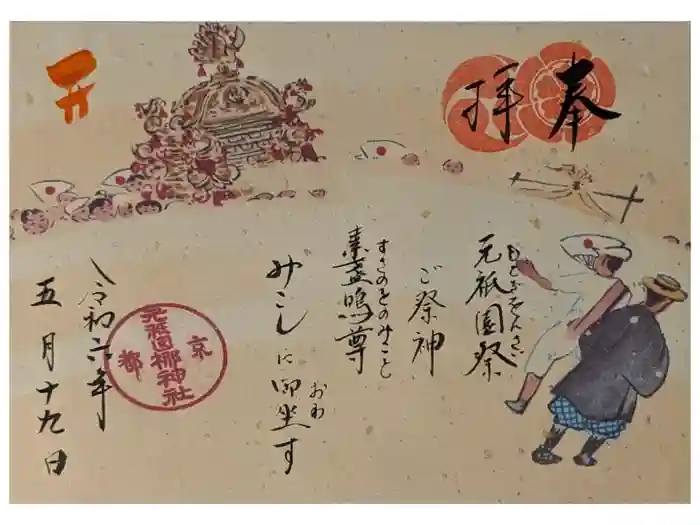 奉拝
もとぎをんさい
元祇園祭
ご祭神
すさのをのみこと
素盞嗚尊
みこしに御坐す
おわ
令和六年
五月十九日
京都
元祇園梛神社